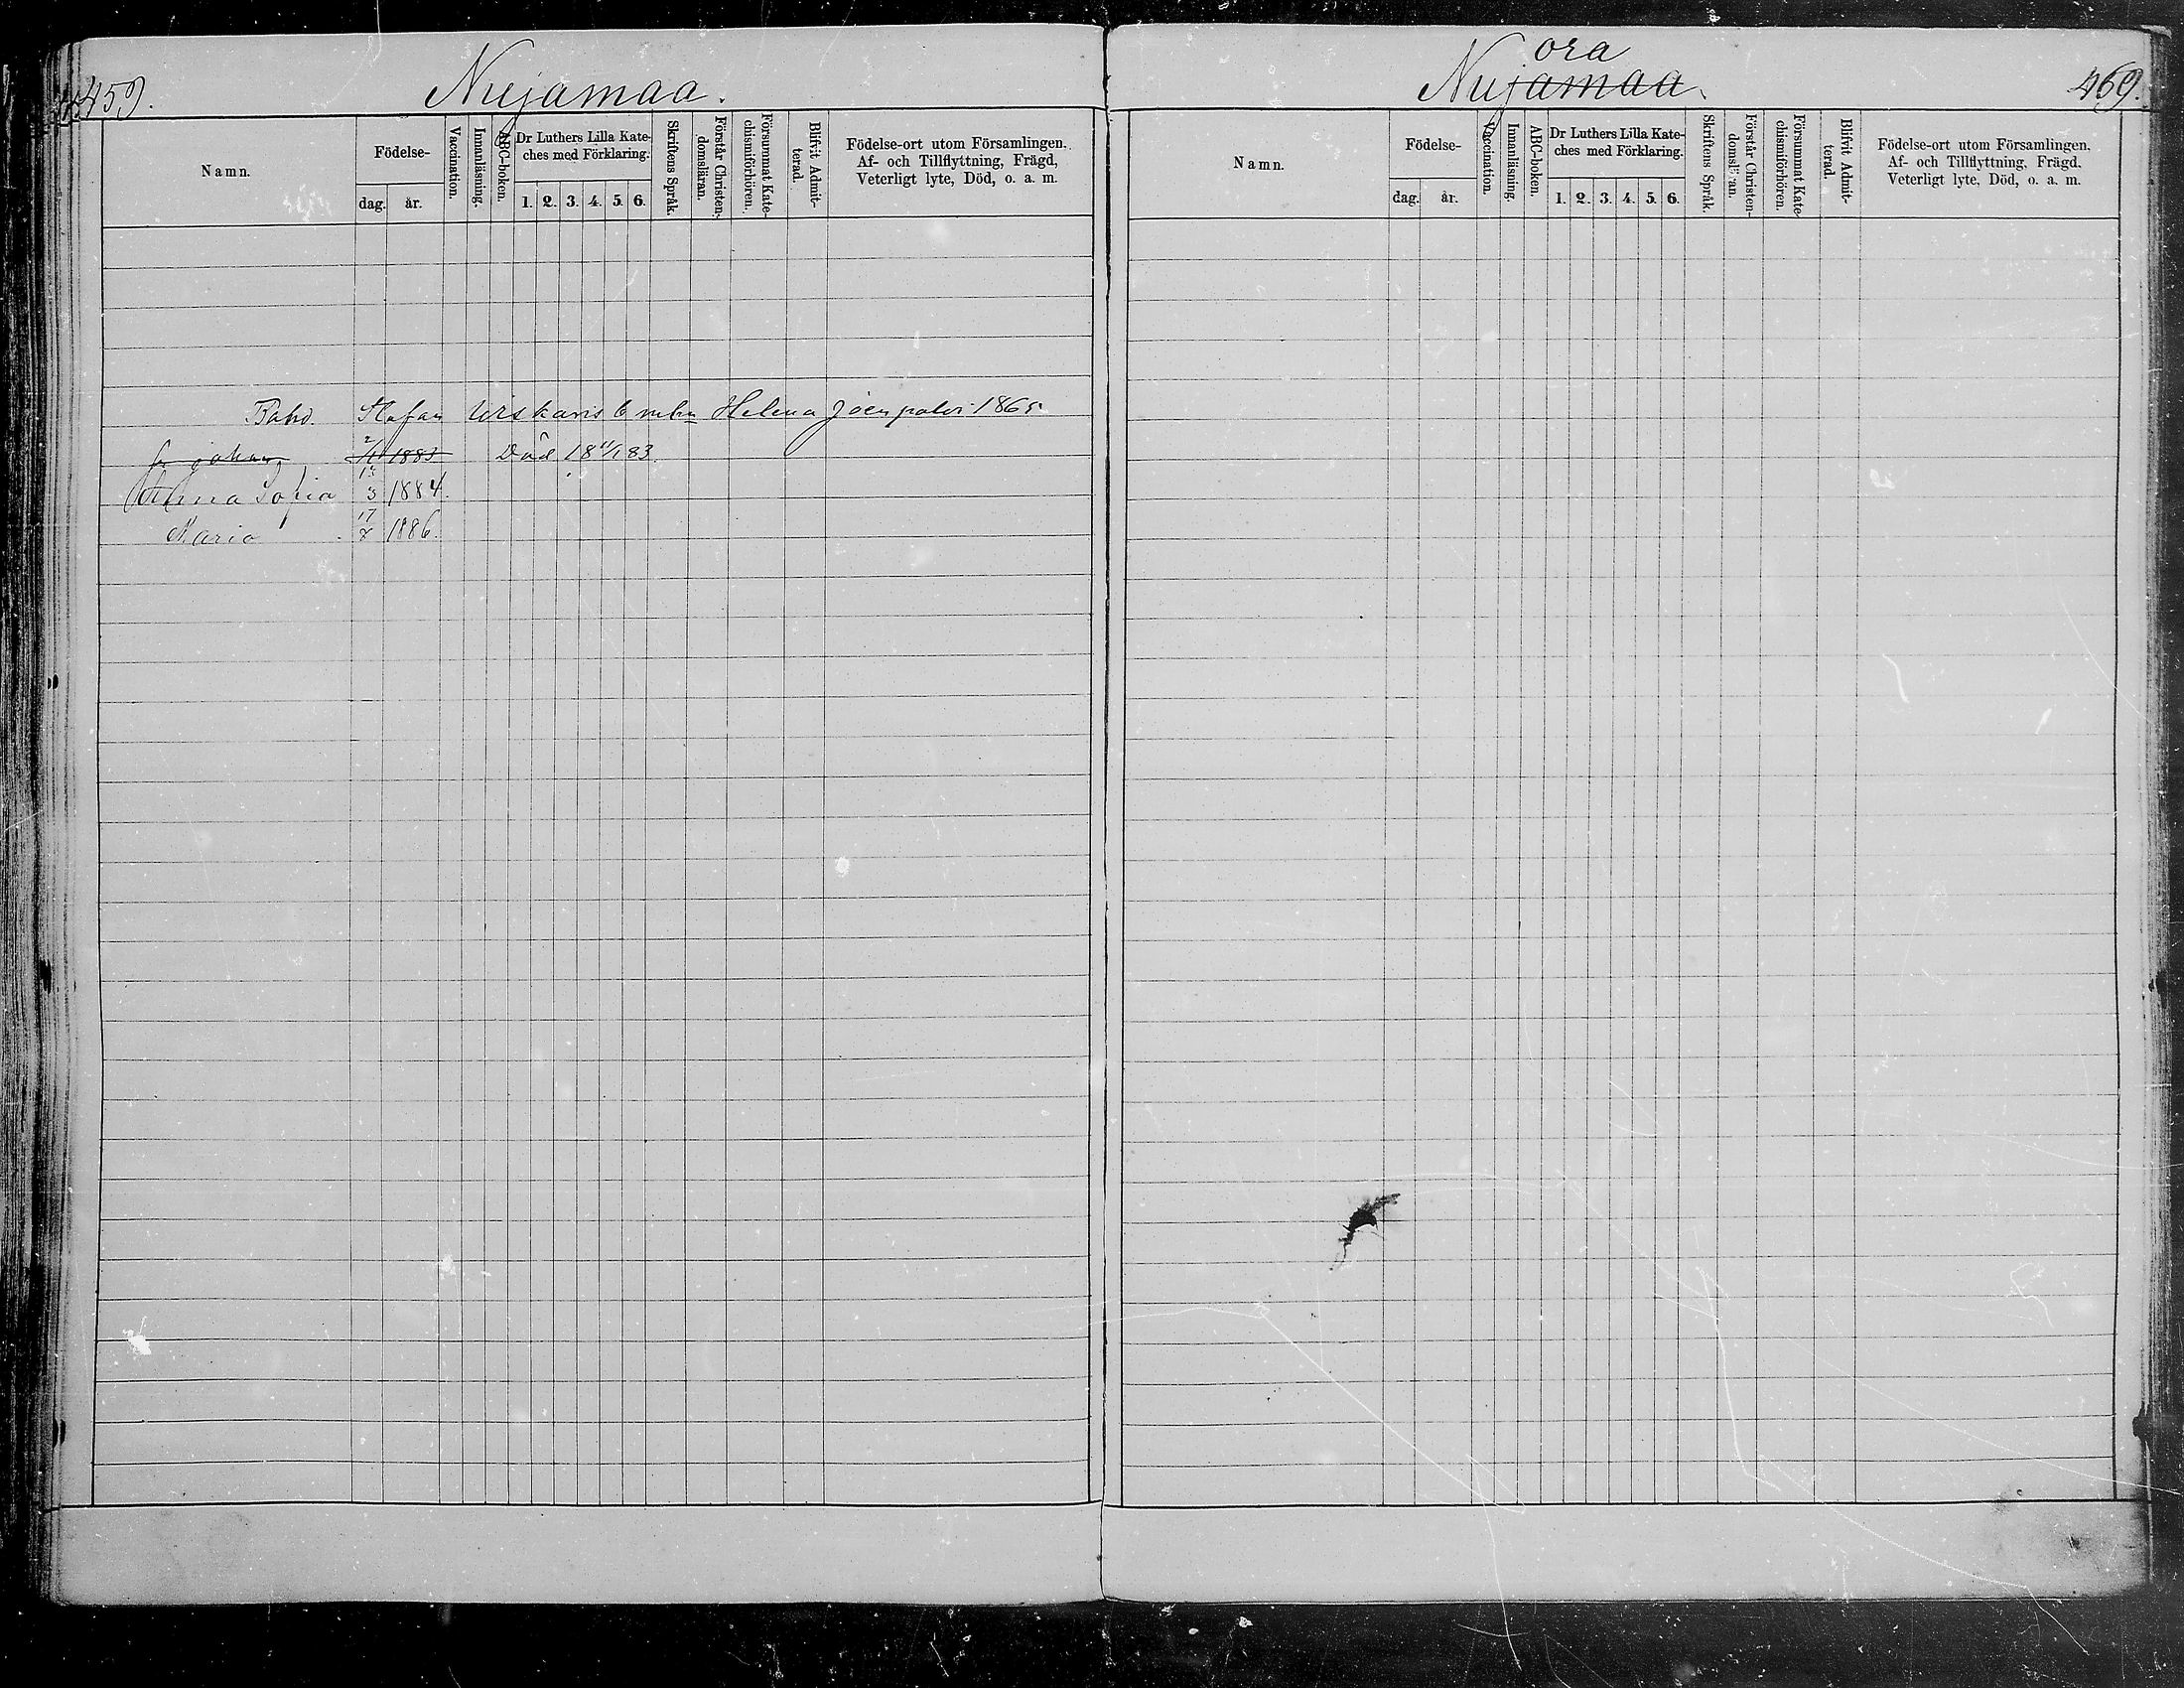 459.
Nuijamaa.
Namn.
Födelse-
dag.
år.
Vaccination.
Innanläsning.
ABC-boken.
Dr Luthers Lilla Kate-
ches med Förklaring.
1. 2. 3. 4. 5. 6.
Skriftens Språk.
Förstår Christen-
domsläran.
Försummat Kate-
chismiförhören.
Blifvit Admit-
terad.
Födelse-ort utom Församlingen.
Af- och Tillflyttning, Frägd,
Veterligt lyte, Död, o. a. m.
Stafan Helena 1865
Johan 2/1 1883 Död 18 11/1 83.
Sofia 3 1884.
Maria 17/7 1886.
ora
Nuijamaa.
469.
Namn.
Födelse-
dag.
år.
Vaccination.
Innanläsning.
ABC-boken.
Dr Luthers Lilla Kate-
ches med Förklaring.
1. 2. 3. 4. 5. 6.
Skriftens Språk.
Förstår Christen-
domsläran.
Försummat Kate-
chismiförhören.
Blifvit Admit-
terad.
Födelse-ort utom Församlingen.
Af- och Tillflyttning, Frägd.
Veterligt lyte, Död, o. a. m.